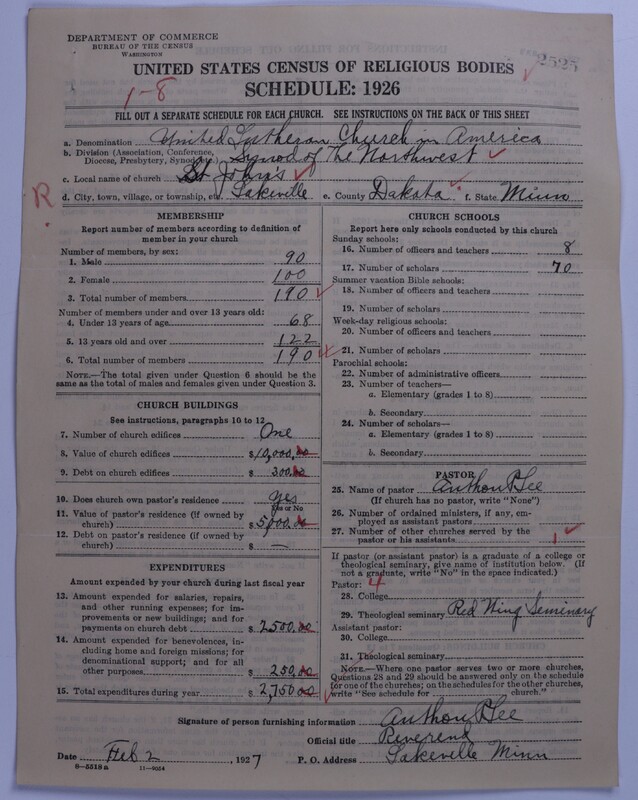 DEPARTMENT OF COMMERCE
BUREAU OF THE CENSUS
WASHINGTON
2525
UNITED STATES CENSUS OF RELIGIOUS BODIES
SCHEDULE: 1926
1-8
FILL OUT A SEPARATE SCHEDULE FOR EACH CHURCH. SEE INSTRUCTIONS ON THE BACK OF THIS SHEET
a. Denomination United Lutheran Church in America
b. Division (Association, Conference, Diocese, Presbytery, Synod, etc.) Synod of the Northwest
c. Local name of church St John's
d. City, town, village, or township, etc. Lakeville e. County Dakota f. State Minn
R
MEMBERSHIP
Report number of members according to definition of member in your church
Number of members, by sex:
1. Male 90
2. Female 100
3. Total number of members 190
Number of members under and over 13 years old:
4. Under 13 years of age 68
5. 13 years old and over 122
6. Total number of members 190
NOTE.—The total given under Question 6 should be the same as the total of males and females given under Question 3.
CHURCH BUILDINGS
See instructions, paragraphs 10 to 12
7. Number of church edifices One
8. Value of church edifices $10,000.00
9. Debt on church edifices $ 300.00
10. Does church own pastor's residence yes
Yes or No
11. Value of pastor's residence (if owned by church) $5,000.00
12. Debt on pastor's residence (if owned by church) $ —
EXPENDITURES
Amount expended by your church during last fiscal year
13. Amount expended for salaries, repairs, and other running expenses; for improvements or new buildings; and for payments on church debt $2500.00
14. Amount expended for benevolences, including home and foreign missions; for denominational support; and for all other purposes $ 250.00
15. Total expenditures during year $ 2,750.00
CHURCH SCHOOLS
Report here only schools conducted by this church
Sunday schools:
16. Number of officers and teachers 8
17. Number of scholars 70
Summer vacation Bible schools:
18. Number of officers and teachers
19. Number of scholars
Week-day religious schools:
20. Number of officers and teachers
21. Number of scholars
Parochial schools:
22. Number of administrative officers
23. Number of teachers—
a. Elementary (grades 1 to 8)
b. Secondary
24. Number of scholars—
a. Elementary (grades 1 to 8)
b. Secondary
PASTOR
25. Name of pastor Anthon P. Lee
(If church has no pastor, write "None")
26. Number of ordained ministers, if any, employed as assistant pastors
27. Number of other churches served by the pastor or his assistants 1
If pastor (or assistant pastor) is a graduate of a college or theological seminary, give name of institution below. (If not a graduate, write "No" in the space indicated.)
Pastor: 4
28. College
29. Theological seminary Red Wing Seminary
Assistant pastor:
30. College
31. Theological seminary
NOTE.—Where one pastor serves two or more churches, Questions 28 and 29 should be answered only on the schedule for one of the churches; on the schedules for the other churches, write "See schedule for church."
Signature of person furnishing information Anthon P. Lee
Official title Reverend
Date Feb 2, 1927 P. O. Address Lakeville Minn
8—5518 a 11—9554